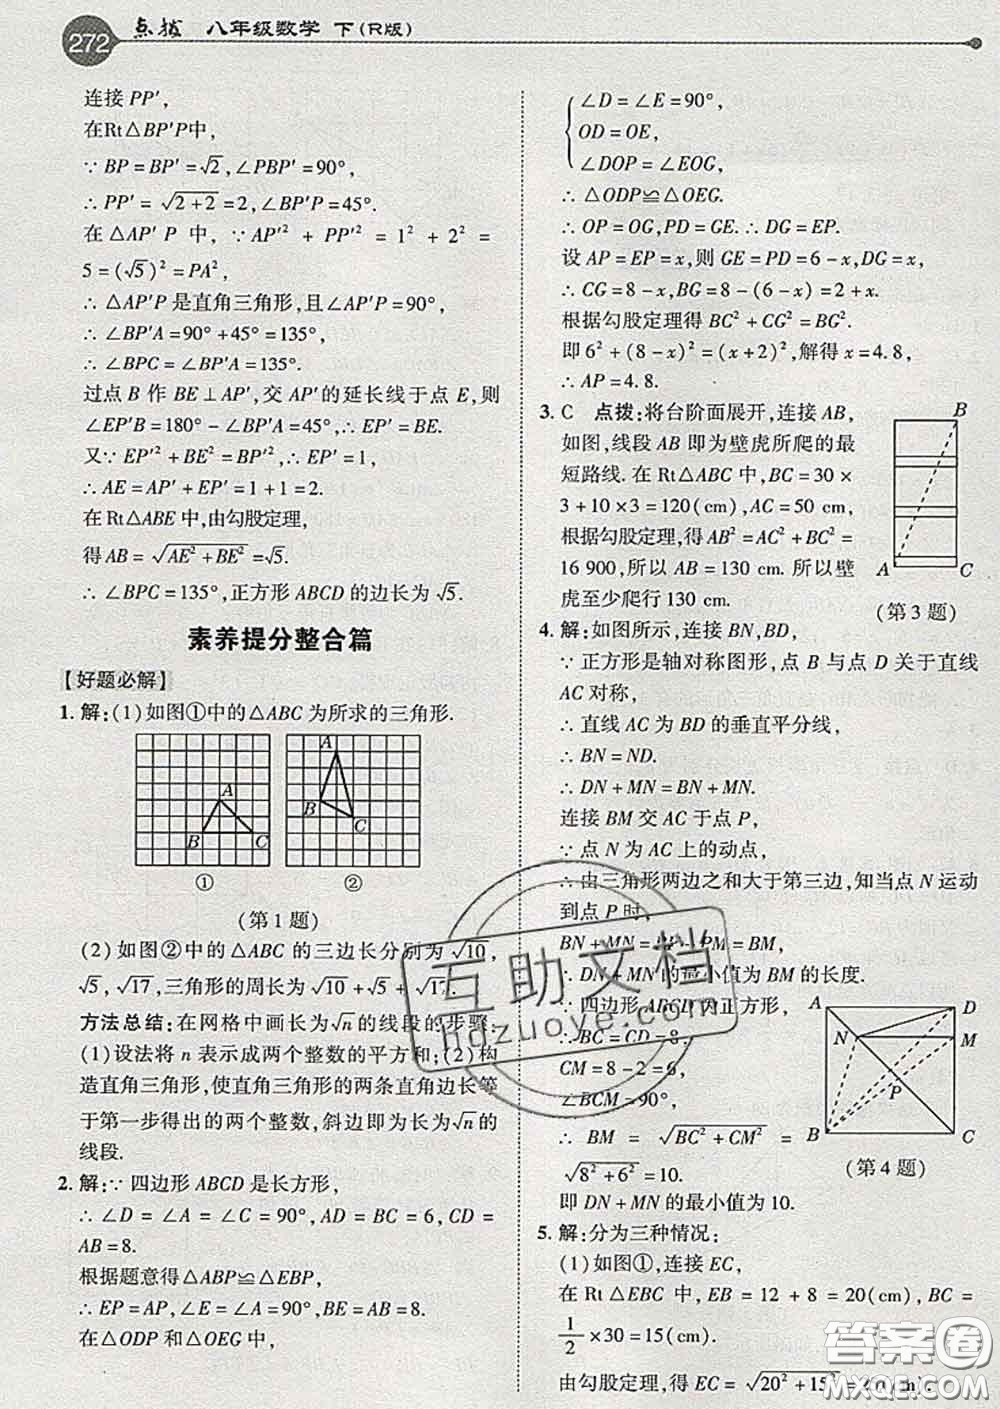 272 点拨 八年级数学 下(R版)
连接 PP′,
在Rt△BP′P中,
∵BP=BP′=√2,∠PBP′=90°,
∴PP′=√(2+2)=2,∠BP′P=45°.
在△AP′P 中,∵AP′²+PP′²=1²+2²=
5=(√5)²=PA²,
∴△AP′P 是直角三角形,且∠AP′P=90°,
∴∠BP′A=90°+45°=135°,
∴∠BPC=∠BP′A=135°.
过点 B 作 BE⊥AP′,交 AP′的延长线于点 E,则
∠EP′B=180°-∠BP′A=45°,∴EP′=BE.
又∵EP′²+BE²=BP′²,∴EP′=BE=1,
∴AE=AP′+EP′=1+1=2.
在Rt△ABE 中,由勾股定理,
得AB=√(AE²+BE²)=√5.
∴∠BPC=135°,正方形 ABCD 的边长为√5.
素养提分整合篇
【好题必解】
1. 解:(1)如图①中的△ABC 为所求的三角形.
A
B C
①
A
B
C
②
(第1题)
(2)如图②中的△ABC 的三边长分别为√10,
√5,√17,三角形的周长为√10+√5+√17.
方法总结:在网格中画长为√n的线段的步骤:
(1)设法将 n 表示成两个整数的平方和;(2)构
造直角三角形,使直角三角形的两条直角边长等
于第一步得出的两个整数,斜边即为长为√n的
线段.
2. 解:∵四边形 ABCD 是长方形,
∴∠D=∠A=∠C=90°,AD=BC=6,CD=
AB=8.
根据题意得△ABP≌△EBP,
∴EP=AP,∠E=∠A=90°,BE=AB=8.
在△ODP 和△OEG 中,
∠D=∠E=90°,
OD=OE,
∠DOP=∠EOG,
∴△ODP≌△OEG.
∴OP=OG,PD=GE.∴DG=EP.
设 AP=EP=x,则 GE=PD=6-x,DG=x,
∴CG=8-x,BG=8-(6-x)=2+x.
根据勾股定理得 BC²+CG²=BG².
即6²+(8-x)²=(x+2)²,解得 x=4.8,
∴AP=4.8.
3. C 点拨:将台阶面展开,连接 AB,
如图,线段 AB 即为壁虎所爬的最
短路线.在 Rt△ABC 中,BC=30×
3+10×3=120(cm),AC=50 cm,
根据勾股定理,得 AB²=AC²+BC²=
16 900,所以 AB=130 cm.所以壁
虎至少爬行130 cm.
B
A C
(第3题)
4. 解:如图所示,连接 BN,BD,
∵正方形是轴对称图形,点 B 与点 D 关于直线
AC 对称,
∴直线 AC 为 BD 的垂直平分线,
∴BN=ND.
∴DN+MN=BN+MN.
连接 BM 交 AC 于点 P,
∵点 N 为 AC 上的动点,
∴由三角形两边之和大于第三边,知当点 N 运动
到点 P 时,
BN+MN=BP+PM=BM,
∴DN+MN 的最小值为 BM 的长度.
∵四边形 ABCD 为正方形,
∴BC=CD=8,
CM=8-2=6,
∠BCM=90°,
∴BM=√(BC²+CM²)=
√(8²+6²)=10.
即 DN+MN 的最小值为10.
A D
N M
P
B C
(第4题)
5. 解:分为三种情况:
(1)如图①,连接 EC,
在 Rt△EBC 中,EB=12+8=20(cm),BC=
1/2×30=15(cm).
由勾股定理,得 EC=√(20²+15²)=25(cm).
互助文档
hdzuoye.com
答案圈
MXQE.COM